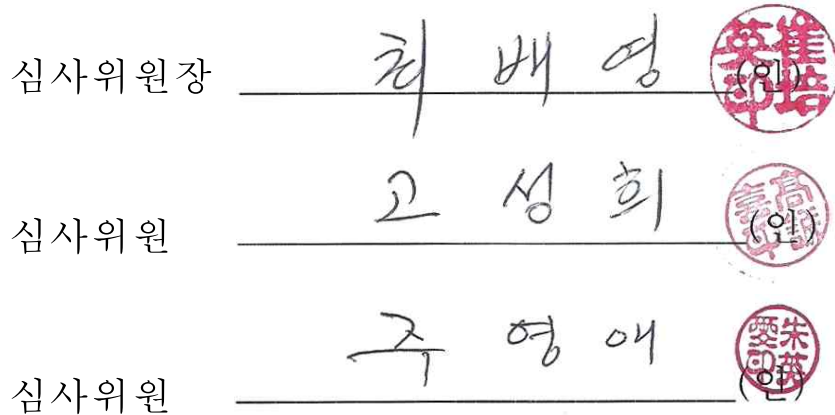 심사위원장 최 배 영 (인)
심사위원 고 성 희 (인)
심사위원 주 영 애 (인)